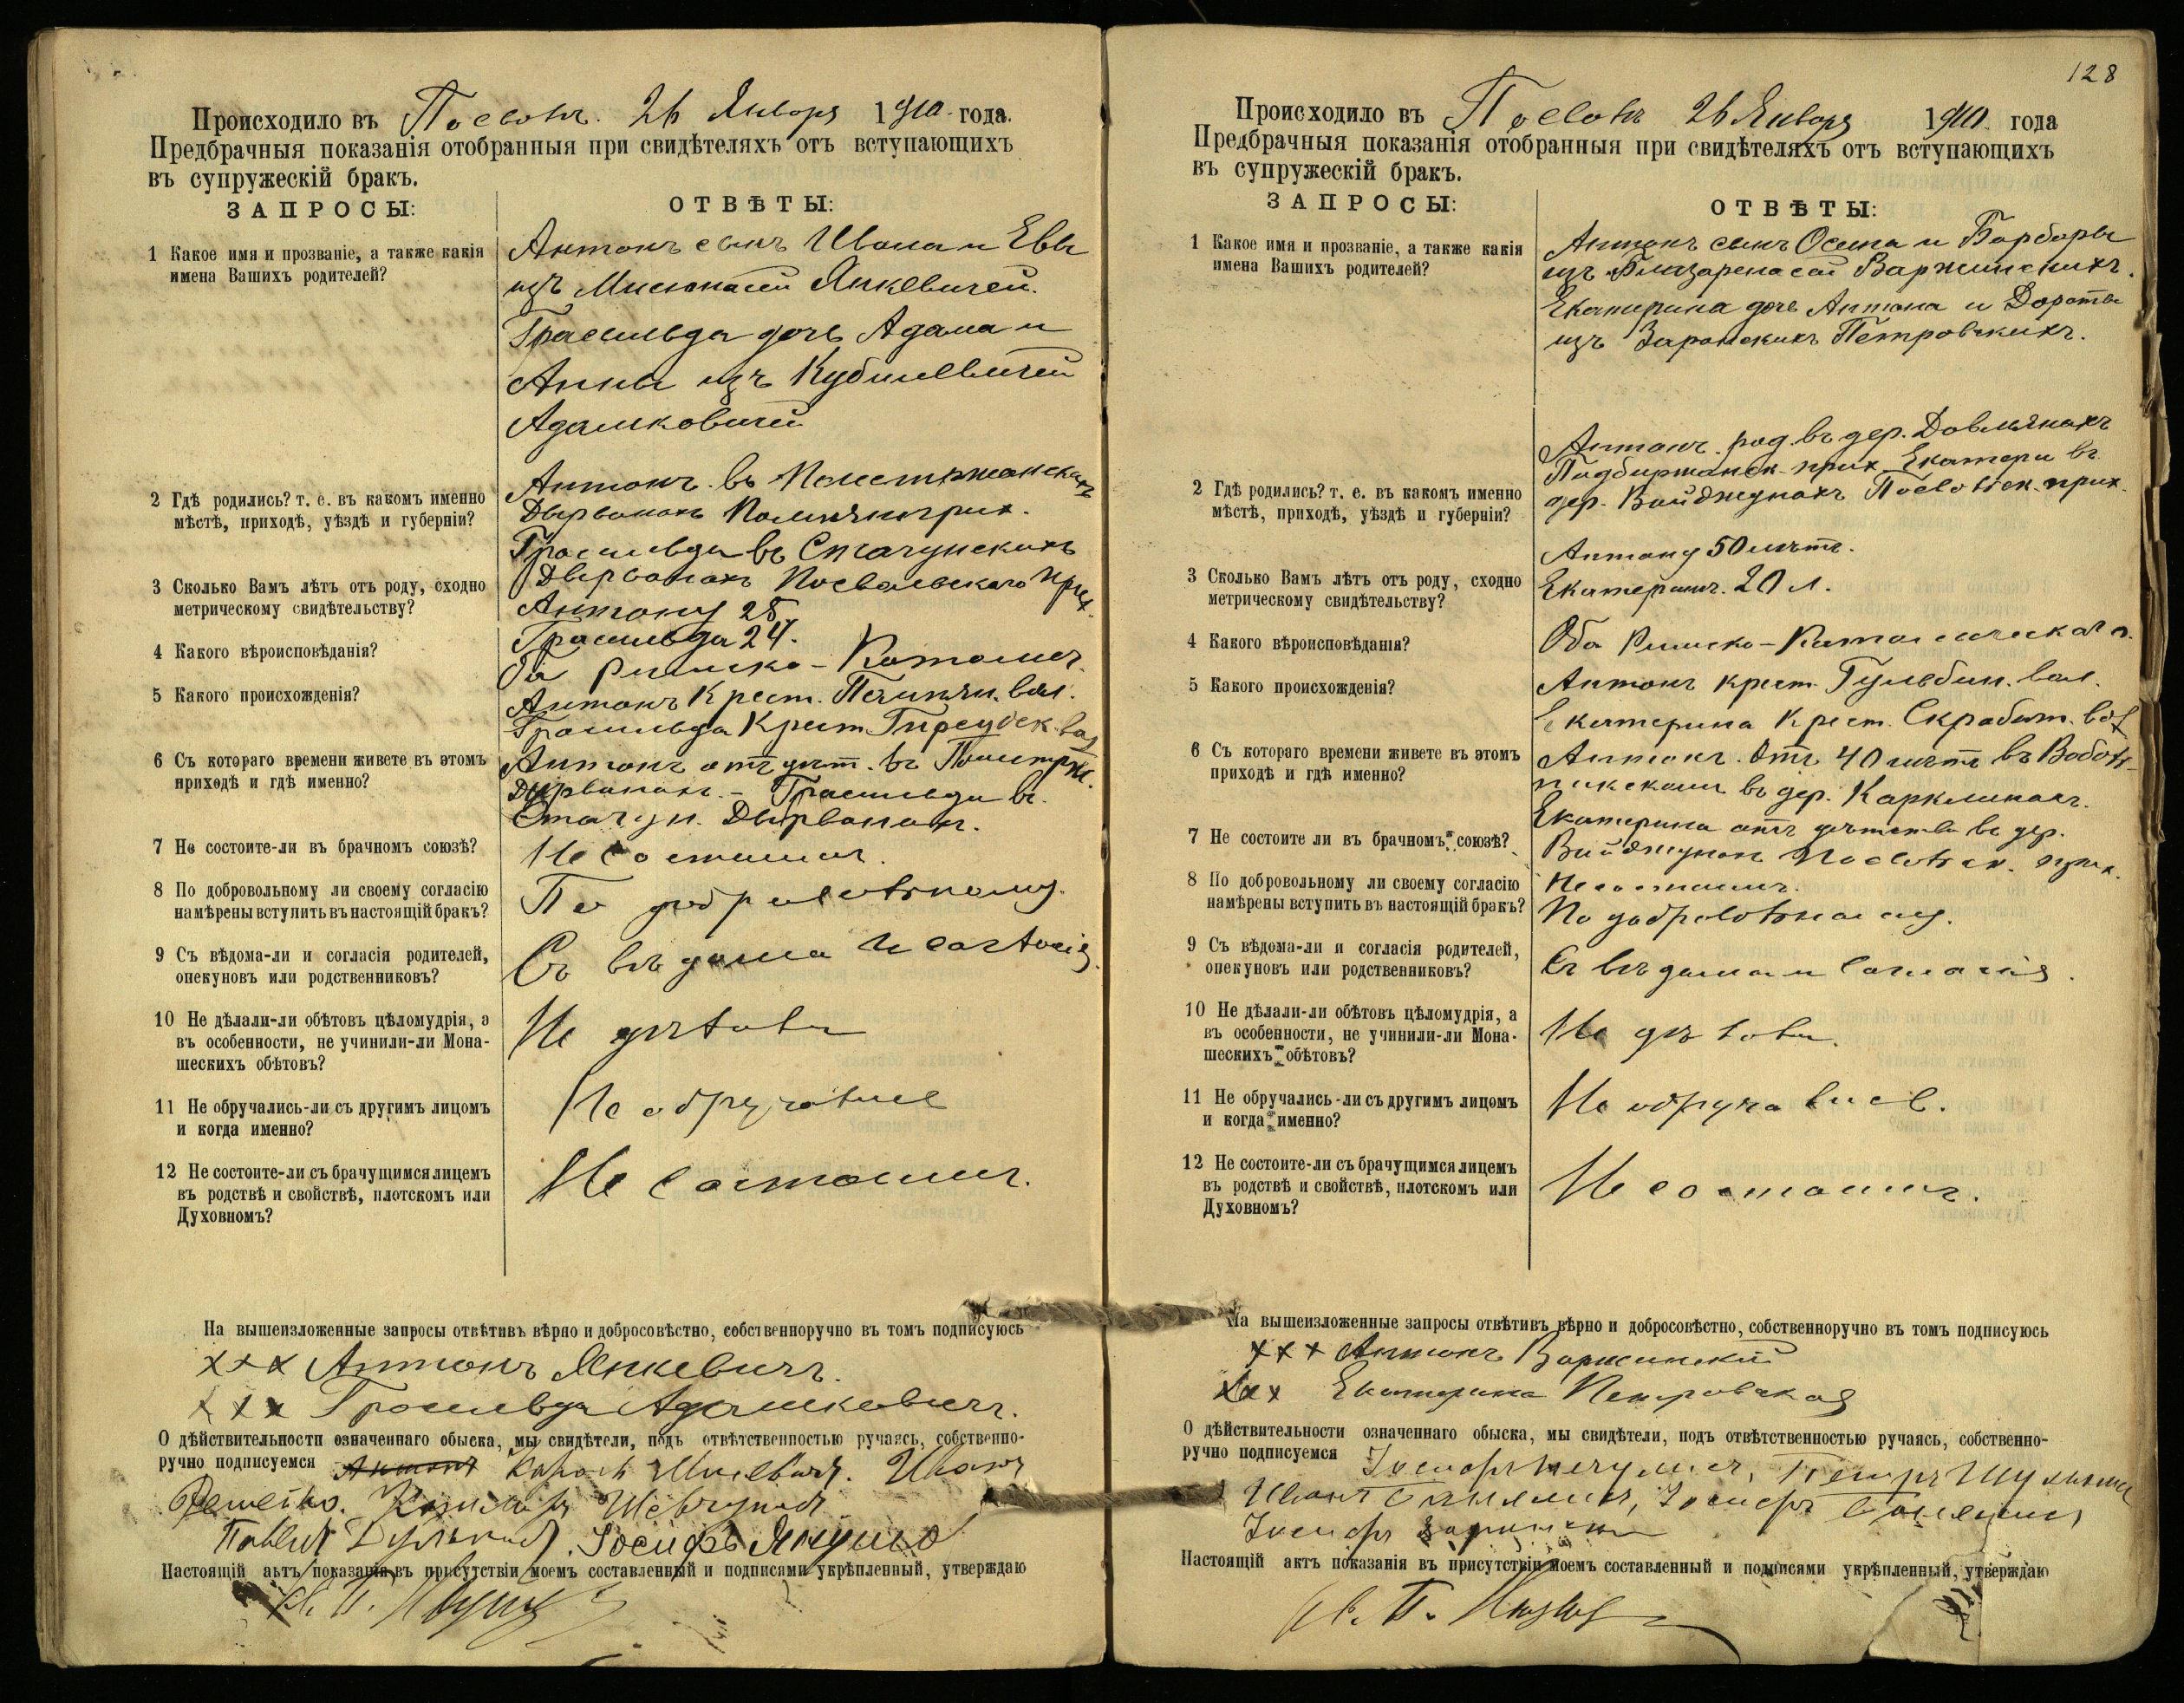 Происходило въ Посвонъ. 26 Января 1910 года.
Предбрачныя показанія отобранныя при свидѣтеляхъ отъ вступающихъ
въ супружескій бракъ.
ЗАПРОСЫ:
ОТВѢТЫ:
1 Какое имя и прозваніе, а также какія
имена Вашихъ родителей?
Антонъ сынъ Ивана и Евы
изъ Янкевичей.
Грасильда дочь Адама и
Анны изъ Кубилевичей
Адамковичей
2 Гдѣ родились? т. е. въ какомъ именно
мѣстѣ, приходѣ, уѣздѣ и губерніи?
Антонъ въ
Дырванахъ
Грасильда въ Стагунскихъ
Дырванахъ Посвольскаго прих.
3 Сколько Вамъ лѣтъ отъ роду, сходно
метрическому свидѣтельству?
Антону 28
Грасильда 24.
4 Какого вѣроисповѣданія?
Оба Римско-Католич.
5 Какого происхожденія?
Антонъ Крест. вол.
Грасильда Крест. вол.
6 Съ котораго времени живете въ этомъ
приходѣ и гдѣ именно?
Антонъ отъ дѣт. въ
Дырванахъ. - Грасильда въ
Стагун. Дырванахъ.
7 Не состоите-ли въ брачномъ союзѣ?
Не состоимъ.
8 По добровольному ли своему согласію
намѣрены вступить въ настоящій бракъ?
По добровольному.
9 Съ вѣдома-ли и согласія родителей,
опекуновъ или родственниковъ?
Съ вѣдома и согласія.
10 Не дѣлали-ли обѣтовъ цѣломудрія, а
въ особенности, не учинили-ли Мона-
шескихъ обѣтовъ?
Не дѣлали
11 Не обручались-ли съ другимъ лицомъ
и когда именно?
Не обручались
12 Не состоите-ли съ брачущимся лицемъ
въ родствѣ и свойствѣ, плотскомъ или
Духовномъ?
Не состоимъ.
На вышеизложенные запросы отвѣтивъ вѣрно и добросовѣстно, собственноручно въ томъ подписуюсь
ххх Антонъ Янкевичъ.
ххх Грасильда Адамкевичъ.
О дѣйствительности означеннаго обыска, мы свидѣтели, подъ отвѣтственностью ручаясь, собственно-
ручно подписуемся Антонъ Иванъ
Іосифъ Янушко
Настоящій актъ показанія въ присутствіи моемъ составленный и подписями укрѣпленный, утверждаю
128
Происходило въ Посвонъ 26 Января 1910 года
Предбрачныя показанія отобранныя при свидѣтеляхъ отъ вступающихъ
въ супружескій бракъ.
ЗАПРОСЫ:
ОТВѢТЫ:
1 Какое имя и прозваніе, а также какія
имена Вашихъ родителей?
Антонъ сынъ Осипа и Барбары
изъ Варжинскихъ.
Екатерина дочь Антона и Дороты
изъ Заронскихъ Петровскихъ.
2 Гдѣ родились? т. е. въ какомъ именно
мѣстѣ, приходѣ, уѣздѣ и губерніи?
Антонъ род. въ дер. Довмянахъ
Подбиржанск. прих. Екатери въ
дер. Войджунахъ Посвольск. прих.
3 Сколько Вамъ лѣтъ отъ роду, сходно
метрическому свидѣтельству?
Антону 50 лѣтъ.
Екатеринѣ. 20 л.
4 Какого вѣроисповѣданія?
Оба Римско-Католическаго.
5 Какого происхожденія?
Антонъ крест. Гульбин. вол.
Екатерина Крест. Скработ. вол
6 Съ котораго времени живете въ этомъ
приходѣ и гдѣ именно?
Антонъ. Отъ 40 лѣтъ въ
въ дер. Карклинахъ.
Екатерина отъ дѣтства въ дер.
Войджунахъ Посвольск. прих.
7 Не состоите ли въ брачномъ союзѣ?
Не состоимъ.
8 По добровольному ли своему согласію
намѣрены вступить въ настоящій бракъ?
По добровольному.
9 Съ вѣдома-ли и согласія родителей,
опекуновъ или родственниковъ?
Съ вѣдома и согласія.
10 Не дѣлали-ли обѣтовъ цѣломудрія, а
въ особенности, не учинили-ли Мона-
шескихъ обѣтовъ?
Не дѣлали.
11 Не обручались-ли съ другимъ лицомъ
и когда именно?
Не обручались.
12 Не состоите-ли съ брачущимся лицемъ
въ родствѣ и свойствѣ, плотскомъ или
Духовномъ?
Не состоимъ.
На вышеизложенные запросы отвѣтивъ вѣрно и добросовѣстно, собственноручно въ томъ подписуюсь
ххх Антонъ Варжинскій
ххх Екатерина Петровская
О дѣйствительности означеннаго обыска, мы свидѣтели, подъ отвѣтственностью ручаясь, собственно-
ручно подписуемся Іосифъ Петръ
Иванъ Іосифъ
Іосифъ
Настоящій актъ показанія въ присутствіи моемъ составленный и подписями укрѣпленный, утверждаю